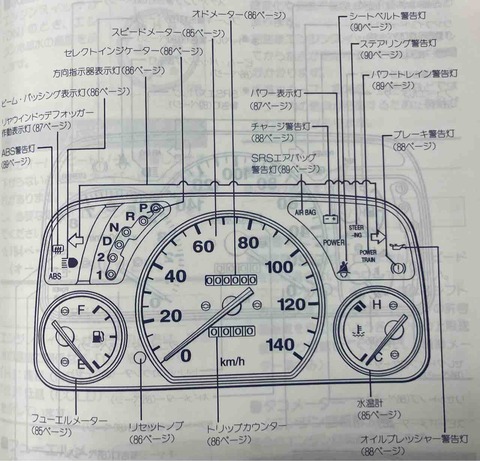 オドメーター(86ページ)
スピードメーター(85ページ)
セレクトインジケーター(86ページ)
方向指示器表示灯(86ページ)
ビーム・パッシング表示灯(86ページ)
リヤウインドゥデフォッガー
作動表示灯(87ページ)
ABS警告灯
(89ページ)
シートベルト警告灯
(90ページ)
ステアリング警告灯
(90ページ)
パワートレイン警告灯
(89ページ)
パワー表示灯
(87ページ)
チャージ警告灯
(88ページ)
ブレーキ警告灯
(88ページ)
SRSエアバッグ
警告灯(89ページ)
P
R
N
D
2
1
ABS
AIR BAG
POWER
STEER
-ING
POWER
TRAIN
0
20
40
60
80
100
120
140
km/h
000000
0000
F
E
H
C
フューエルメーター
(85ページ)
リセットノブ
(86ページ)
トリップカウンター
(86ページ)
水温計
(85ページ)
オイルプレッシャー警告灯
(88ページ)